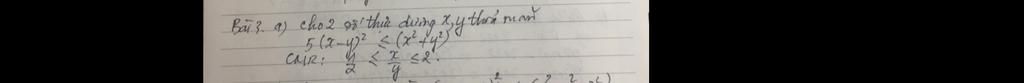 Bài 3. a) cho 2 số thực dương x, y thoả mãn
5(x-y)² ≤ (x²+y²)
CMR: 1/2 ≤ x/y ≤ 2.